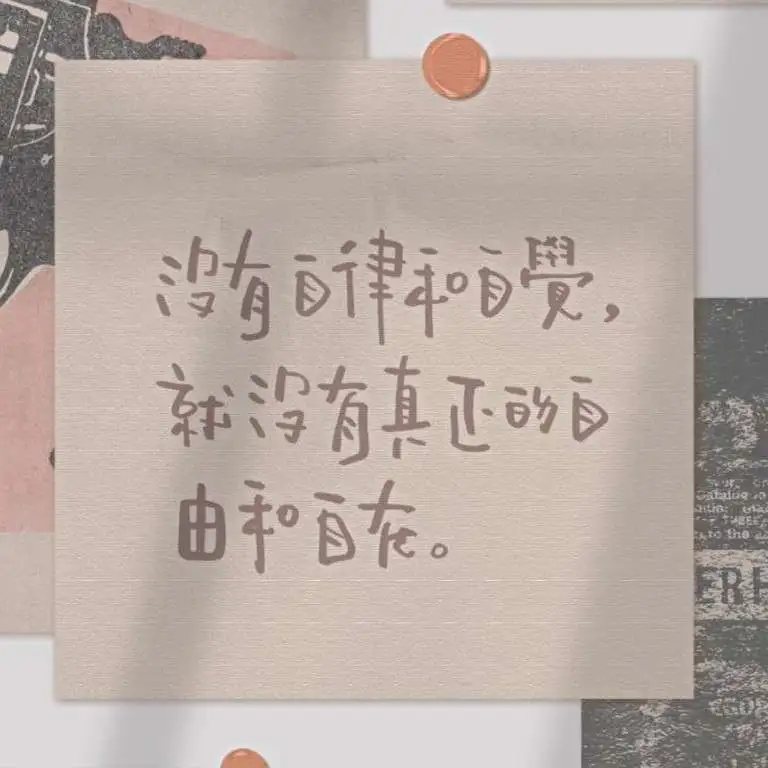 沒有自律和自覺，
就沒有真正的自
由和自在。
FRE
to the